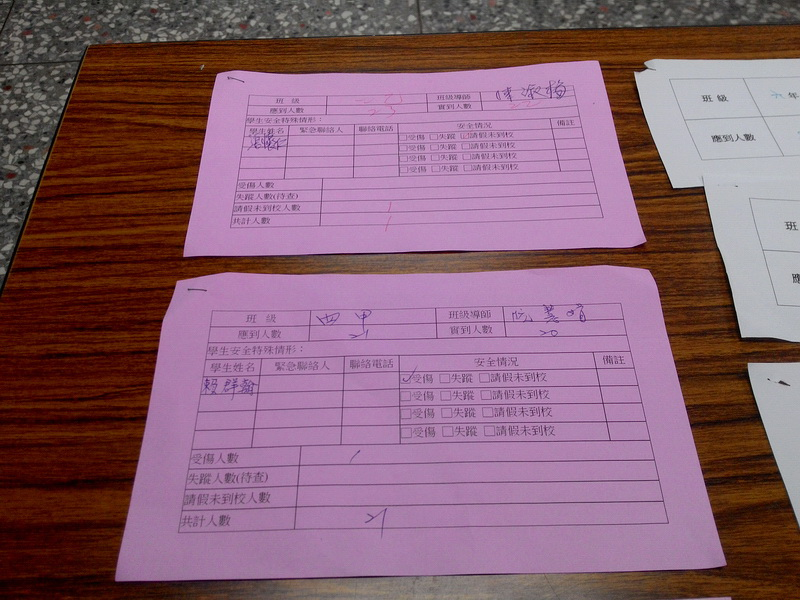 班 級 班級導師
應到人數 23 實到人數 22
學生安全特殊情形：
學生姓名 緊急聯絡人 聯絡電話 安全情況 備註
□受傷 □失蹤 ☑請假未到校
□受傷 □失蹤 □請假未到校
□受傷 □失蹤 □請假未到校
□受傷 □失蹤 □請假未到校
受傷人數
失蹤人數(待查)
請假未到校人數 1
共計人數 1
班 級 四甲 班級導師 阮慧晴
應到人數 21 實到人數 20
學生安全特殊情形：
學生姓名 緊急聯絡人 聯絡電話 安全情況 備註
賴群翰 ☑受傷 □失蹤 □請假未到校
□受傷 □失蹤 □請假未到校
□受傷 □失蹤 □請假未到校
□受傷 □失蹤 □請假未到校
受傷人數 1
失蹤人數(待查)
請假未到校人數
共計人數 21
班 級 六年
應到人數
班